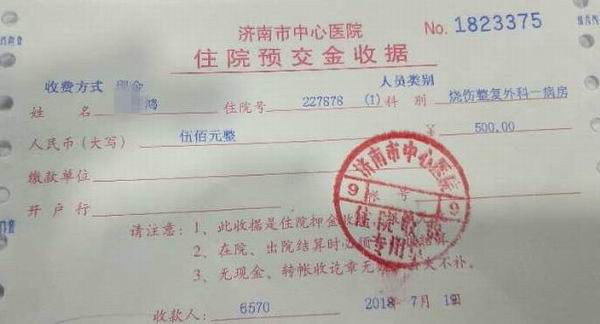 济南市中心医院
No. 1823375
住院预交金收据
收费方式 现金 人员类别
姓名 鸿 住院号 227878 (1) 科别 烧伤整复外科一病房
人民币(大写) 伍佰元整 ¥ 500.00
缴款单位 帐号
开户行
请注意:1、此收据是住院押金收
2、在院、出院结算时必须 结算
3、无现金、转帐收讫章无 丢失不补。
收款人: 6570 2018 年 7 月 19 日
济南市中心医院
9 9
住院收费
专用章